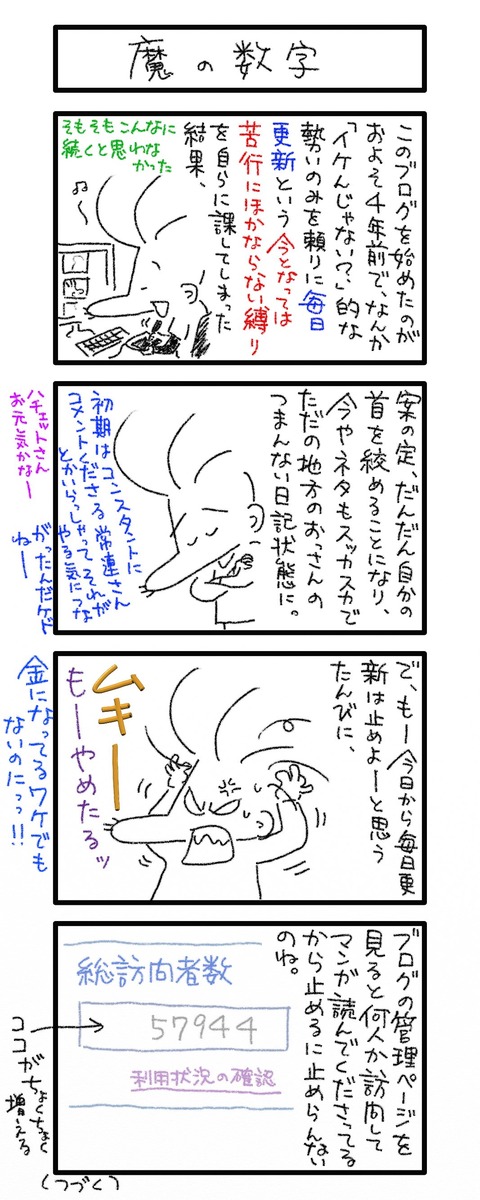 魔の数字
このブログを始めたのが
およそ4年前で、なんか
「イケんじゃない?」的な
勢いのみを頼りに毎日
更新という今となっては
苦行にほかならない縛り
を自らに課してしまった
結果、
そもそもこんなに
続くと思わな
かった
案の定、だんだん自分の
首を絞めることになり、
今やネタもスッカスカで
ただの地方のおっさんの
つまんない日記状態に。
初期はコンスタントに
コメントくださる常連さん
とかいらっしゃってそれが
やる気につな
がったんだケド
ねー
ハチェットさん
お元気かなー
で、もー今日から毎日更
新は止めよーと思う
たんびに、
ムキーー
もーやめたるッ
金になってるワケでも
ないのにっっ!!
ブログの管理ページを
見ると何人か訪問して
マンガ読んでくださってる
から止めるに止めらんない
のね。
総訪問者数
57944
利用状況の確認
ココがちょくちょく
増える
(つづく)